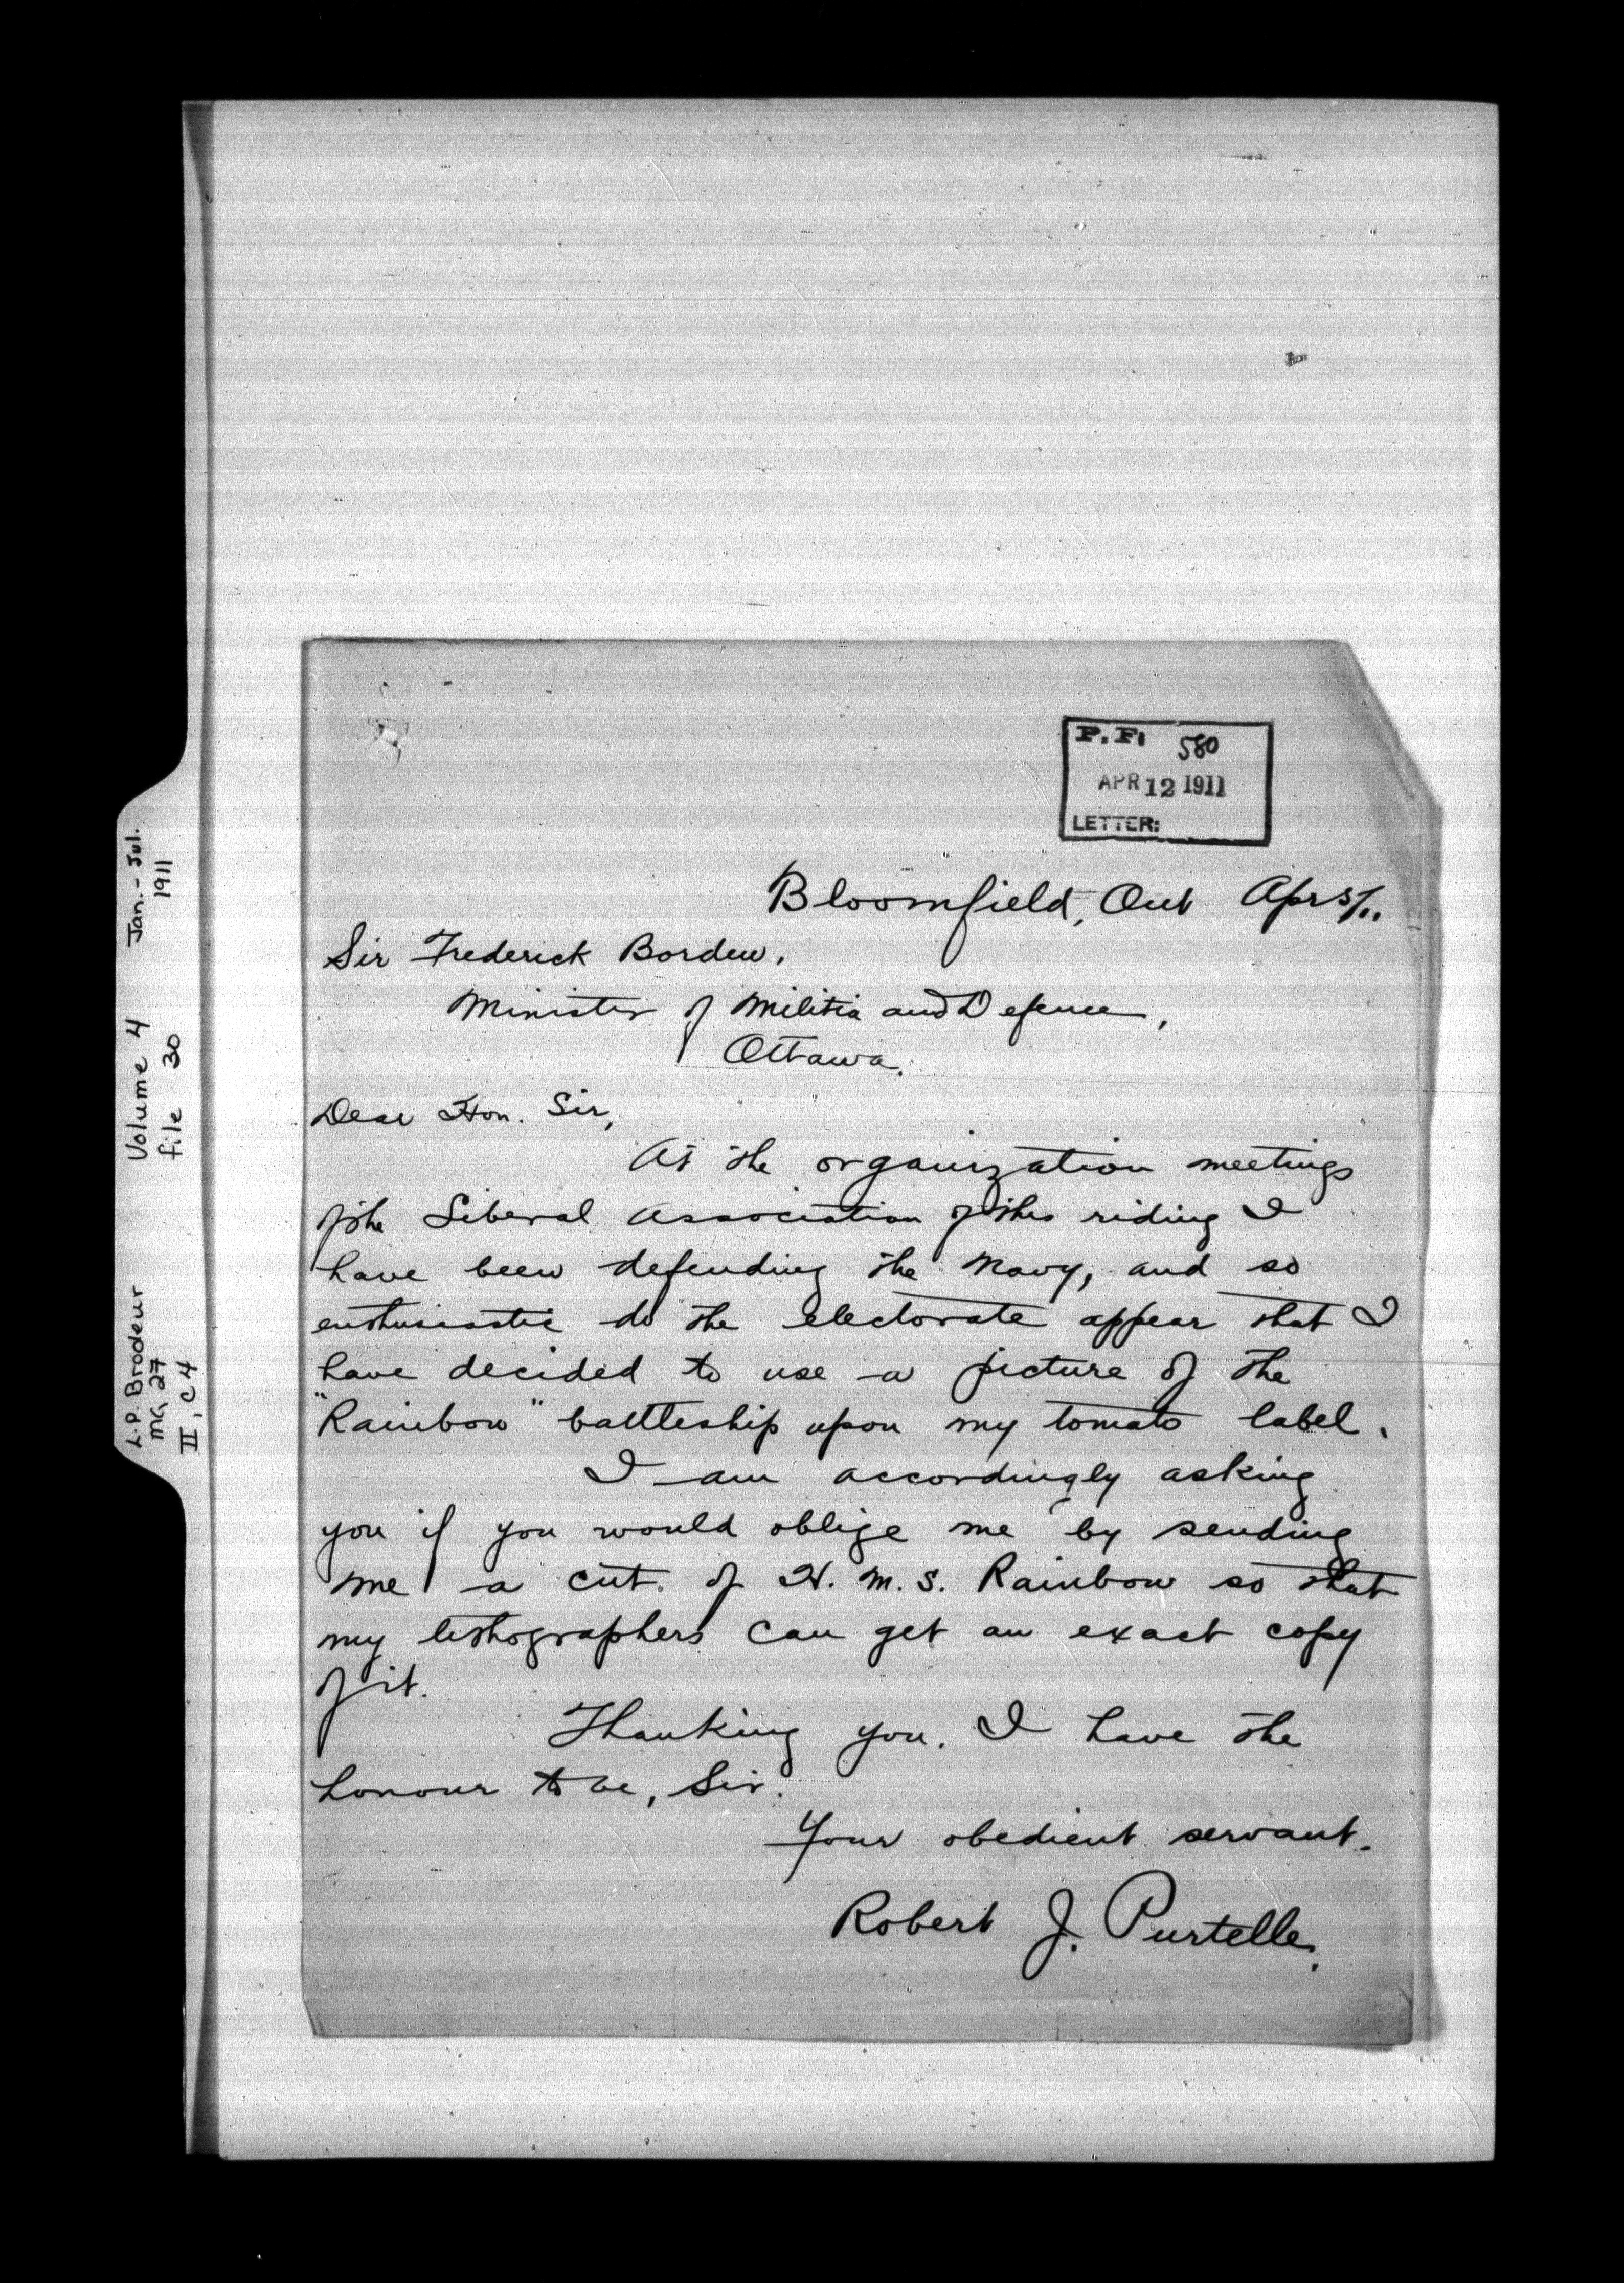 P. F. 580
APR 12 1911
LETTER:
Bloomfield, Ont Apr 5/11
Sir Frederick Borden,
Minister of Militia and Defence,
Ottawa.
Dear Hon. Sir,
At the organization meetings
of the Liberal Association of this riding I
have been defending the Navy, and so
enthusiastic do the electorate appear that I
have decided to use a picture of the
"Rainbow" battleship upon my tomato label.
I am accordingly asking
you if you would oblige me by sending
me a cut of H. M. S. Rainbow so that
my lithographers can get an exact copy
of it.
Thanking you. I have the
honour to be, Sir.
Your obedient servant.
Robert J. Purtelle.
L.P. Brodeur Volume 4 Jan.- Jul.
MG 27 file 30 1911
II, C 4